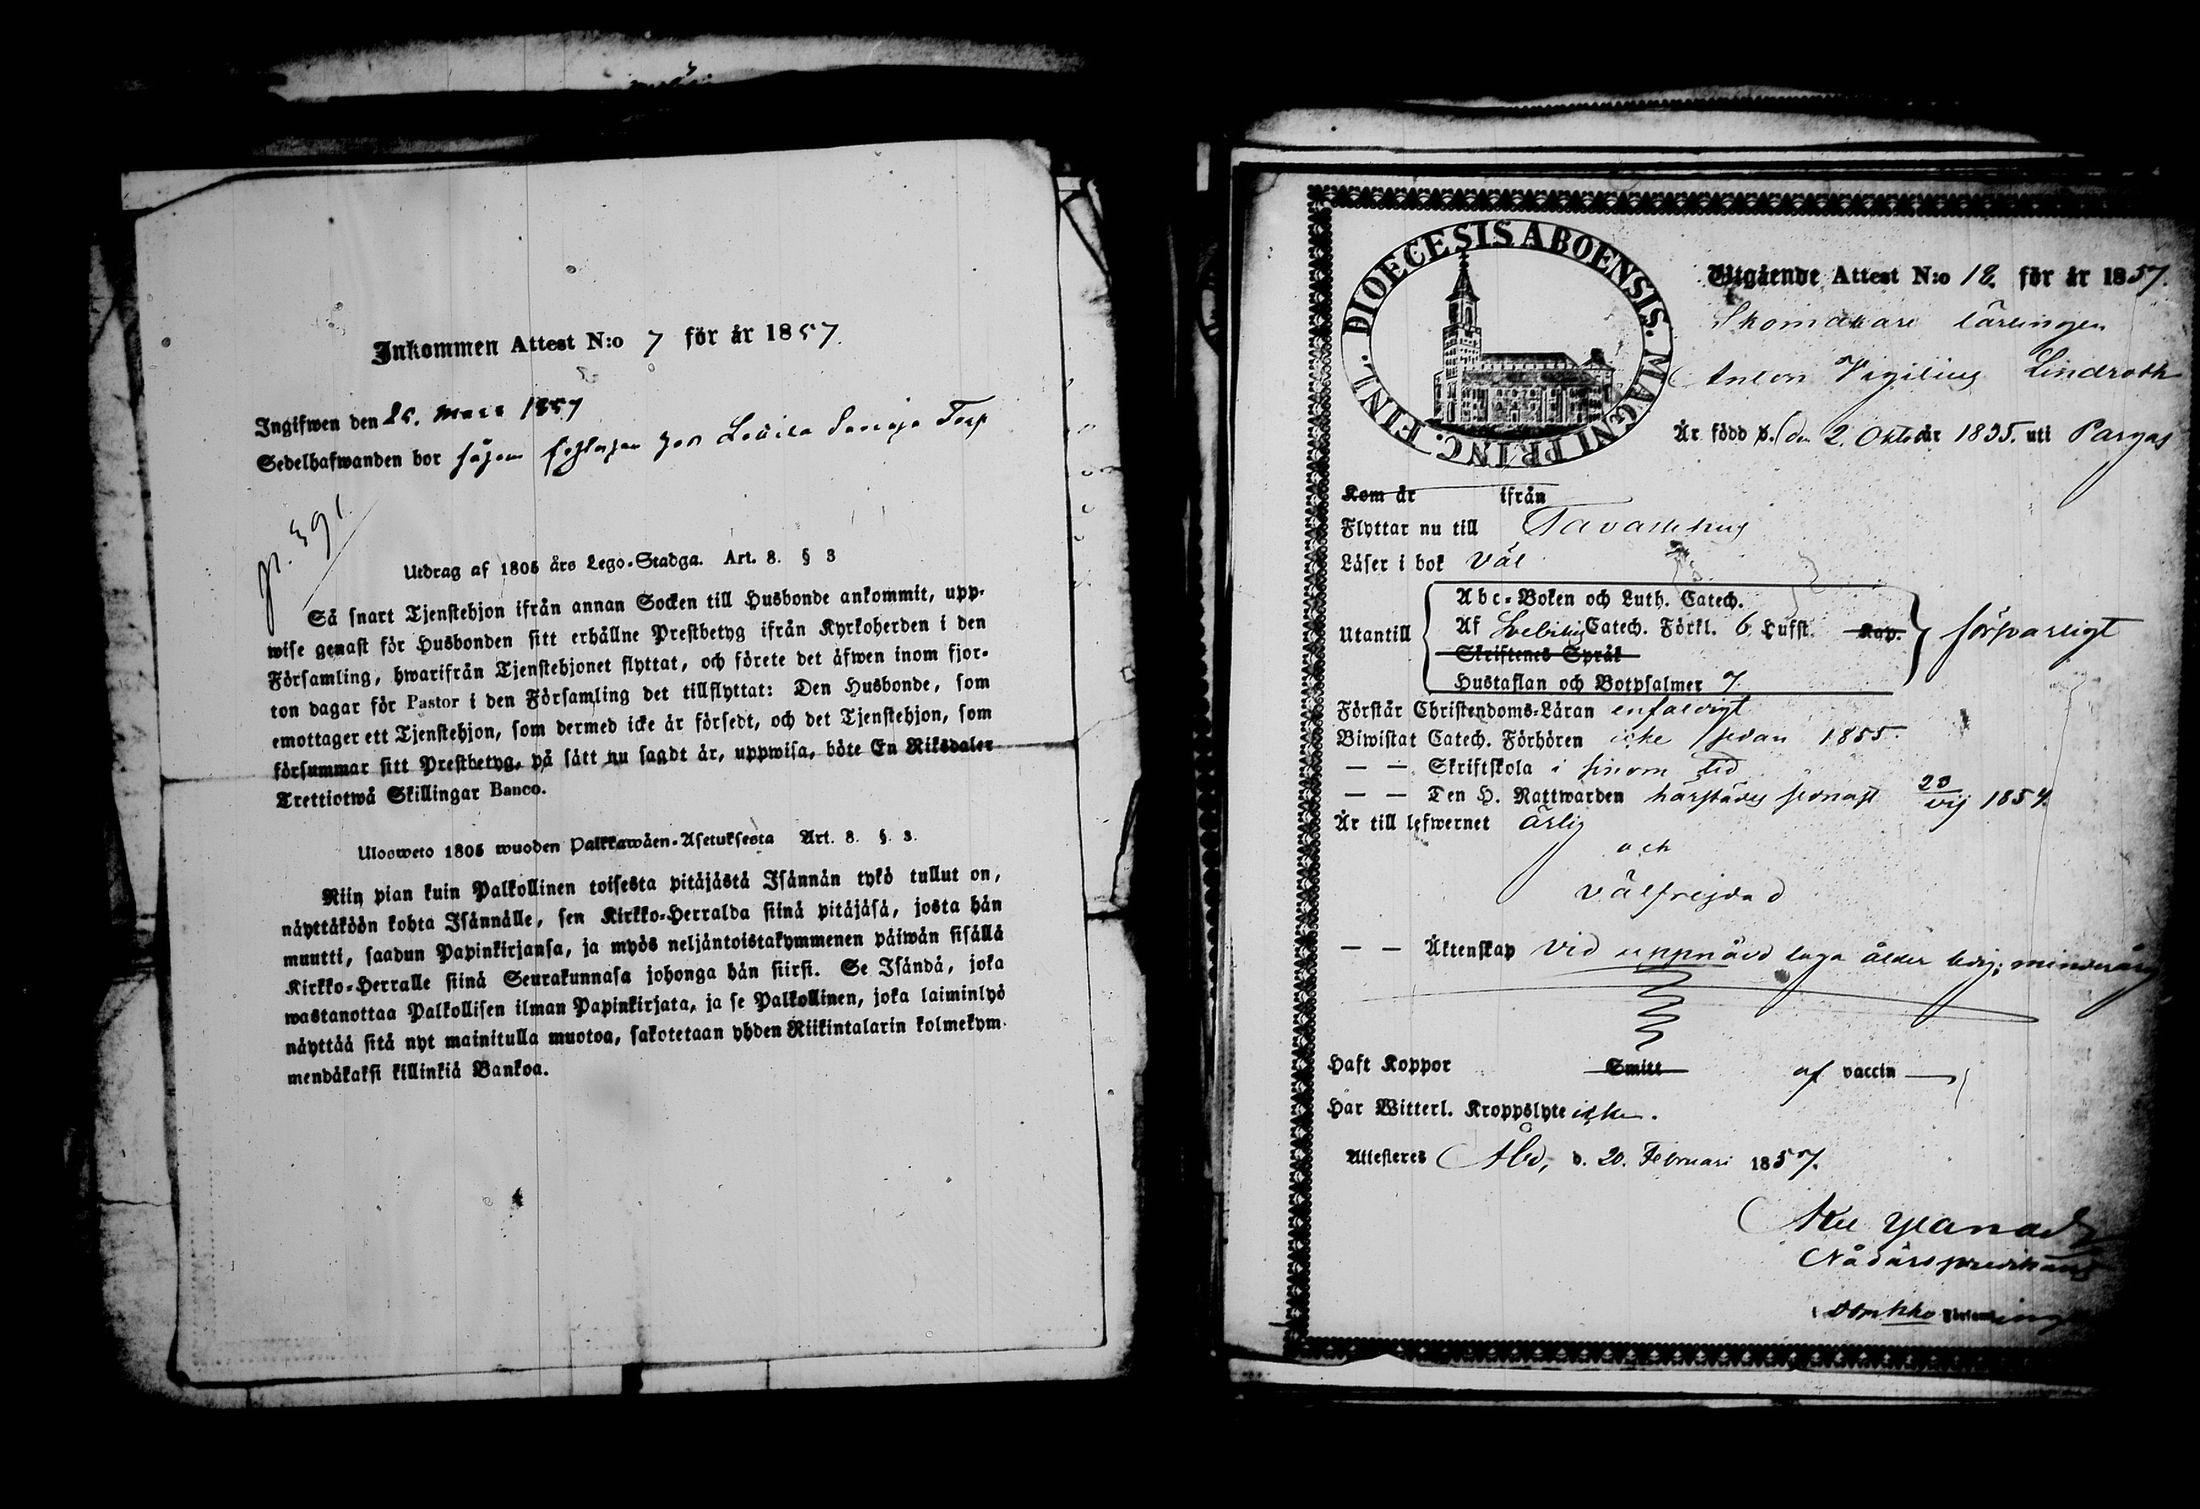 Inkommen Attest N:o 7 för år 1857.
Ingifwen den 25. Mars 1857
Sedelhafwanden bor
p. 391.
Utdrag af 1805 års Lego-Stadga. Art. 8. § 3
Så snart Tjenstehjon ifrån annan Socken till Husbonde ankommit, upp-
wise genast för Husbonden sitt erhållne Prestbetyg ifrån Kyrkoherden i den
Församling, hwarifrån Tjenstehjonet flyttat, och förete det äfwen inom fjor-
ton dagar för Pastor i den Församling det tillflyttat: Den Husbonde, som
emottager ett Tjenstehjon, som dermed icke är försedt, och det Tjenstehjon, som
försummar sitt Prestbetyg, på sätt nu sagdt är, uppwisa, böte En Riksdaler
Trettiotwå Skillingar Banco.
Ulosweto 1805 wuoden Palkkawäen-Asetuksesta Art. 8. §. 3.
Niin pian kuin Palkollinen toisesta pitäjästä Isännän tykö tullut on,
näyttäköön kohta Isännälle, sen Kirkko-Herralda siinä pitäjäsä, josta hän
muutti, saadun Papinkirjansa, ja myös neljäntoistakymmenen päiwän sisällä
Kirkko-Herralle siinä Seurakunnasa johonga hän siirsi. Se Isändä, joka
wastanottaa Palkollisen ilman Papinkirjata, ja se Palkollinen, joka laiminlyö
näyttää sitä nyt mainitulla muotoa, sakotetaan yhden Riikintalarin kolmekym-
mendäkaksi killinkiä Bankoa.
DIOECESIS ABOENSIS. MAGNI PRINC. FINL.
Utgående Attest N:o 18. för år 1857.
Skomakare lärlingen
Anton Vigilius Lindroth
Är född d. 2. Oktob år 1835. uti Pargas
Kom år ifrån
Flyttar nu till Tavastehus
Läser i bok väl
Utantill
Abc-Boken och Luth. Catech.
Af Svebilii Catech. Förkl. 6 Lufst. Kap.
Skriftenes Språk
Hustaflan och Botpsalmer 7
försvarligt
Förstår Christendoms-Läran enfaldigt
Biwistat Catech. Förhören icke sedan 1855.
— — Skriftskola i sinom tid
— — Den H. Nattwarden härstädes sednast 20/vij 1854.
Är till lefwernet ärlig
och
välfrejdad
— — Äktenskap vid uppnådd laga ålder ledig; minderårig
Haft Koppor Smitt af vaccin
Har Witterl. Kroppslyte icke.
Attesteras Åbo, d. 20. Februari 1857.
Nådårspredikant